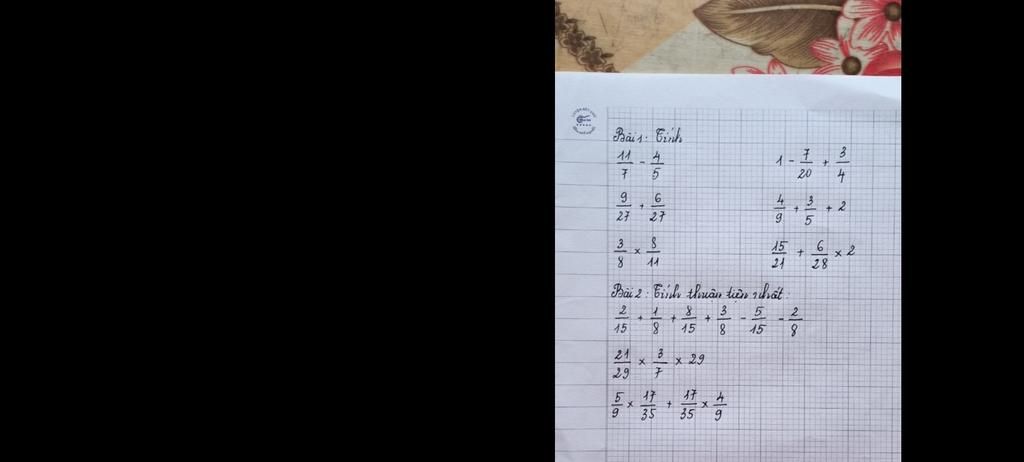 Bài 1: Tính
11/7 - 4/5    1 - 7/20 + 3/4
9/27 + 6/27    4/9 + 3/5 + 2
3/8 × 8/11    15/21 + 6/28 × 2
Bài 2: Tính thuận tiện nhất:
2/15 + 1/8 + 8/15 + 3/8 - 5/15 - 2/8
21/29 × 3/7 × 29
5/9 × 17/35 + 17/35 × 4/9